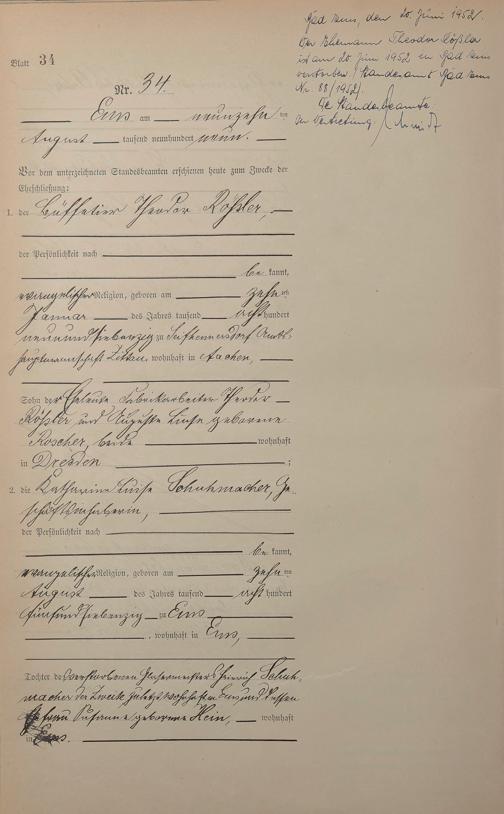 Bad Ems, den 20. Juni 1952.
Der Ehemann Theodor Rößler
ist am 20. Juni 1952 in Bad Ems
verstorben. (Standesamt Bad Ems
Nr. 88/1952)
Der Standesbeamte
In Vertretung:
Blatt 34
Nr. 34.
Ems am neunzehnten
August tausend neunhundert neun.
Vor dem unterzeichneten Standesbeamten erschienen heute zum Zwecke der
Eheschließung:
1. der Büffetier Theodor Rößler,
der Persönlichkeit nach
bekannt,
evangelischer Religion, geboren am zehnten
Januar des Jahres tausend acht hundert
neunundsiebenzig zu Amts-
hauptmannschaft wohnhaft in Aachen,
Sohn der Eheleute Fabrikarbeiter Theodor
Rößler und Auguste geborene
Roscher, beide wohnhaft
in Dresden ;
2. die Katharina Luise Schuhmacher, Ge-
schäftsinhaberin,
der Persönlichkeit nach
bekannt,
evangelischer Religion, geboren am zehnten
August des Jahres tausend acht hundert
fünfundsiebenzig zu Ems
, wohnhaft in Ems,
Tochter des verstorbenen Glasermeisters Heinrich Schuh-
macher der Zweite zuletzt wohnhaft in Ems und dessen
Ehefrau Susanne geborene Hein, wohnhaft
in Ems.